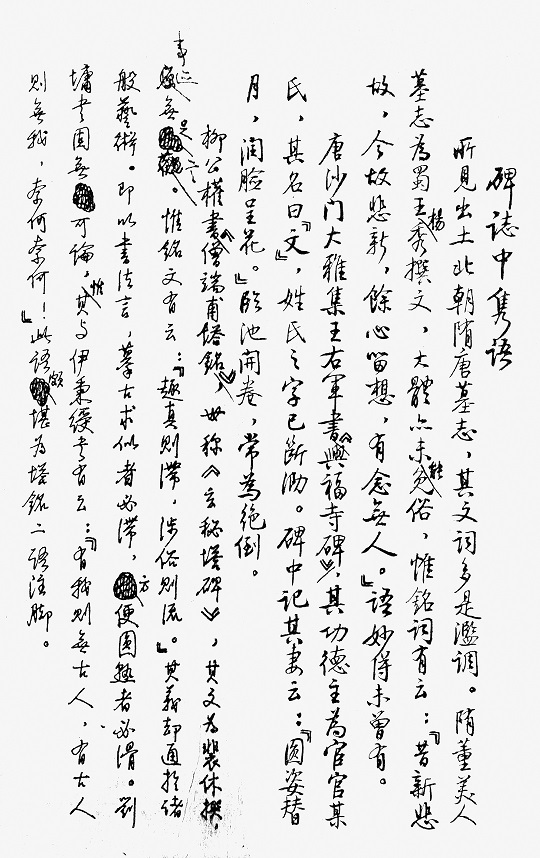 碑誌中隽语
所見出土北朝隋唐墓志，其文词多是濫調。隋董美人
墓志為蜀王楊秀撰文，大體亦未能免俗，惟銘詞有云：『昔新悲
故，今故悲新，餘心留想，有念無人。』语妙得未曾有。
唐沙门大雅集王右軍書《興福寺碑》，其功德主為宦官某
氏，其名曰『文』，姓氏之字已断泐。碑中记其妻云：『圆姿替
月，润脸呈花。』臨池開卷，常為絕倒。
柳公權書《僧端甫塔銘》，世称《玄秘塔碑》，其文為裴休撰，
事迹無足言。惟銘文有云：『趣真则滞，涉俗则流。』其義却通於诸
般藝術。即以書法言，摹古求似者必滞，方便圆熟者必滑。刘
墉書固無可論，惟其与伊秉绶書有云：『有我则無古人，有古人
则無我，奈何奈何！』此語頗堪為塔銘二語注脚。